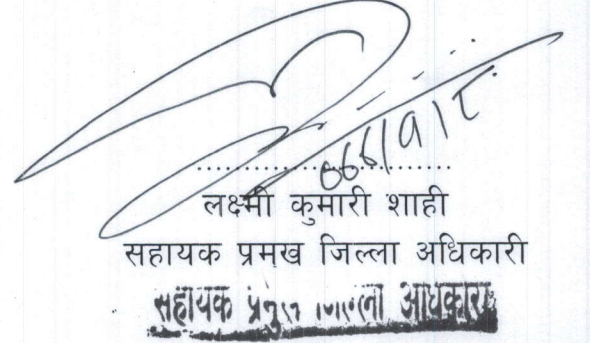 लक्ष्मी कुमारी शाही
सहायक प्रमुख जिल्ला अधिकारी
सहायक प्रमुख जिल्ला अधिकारी